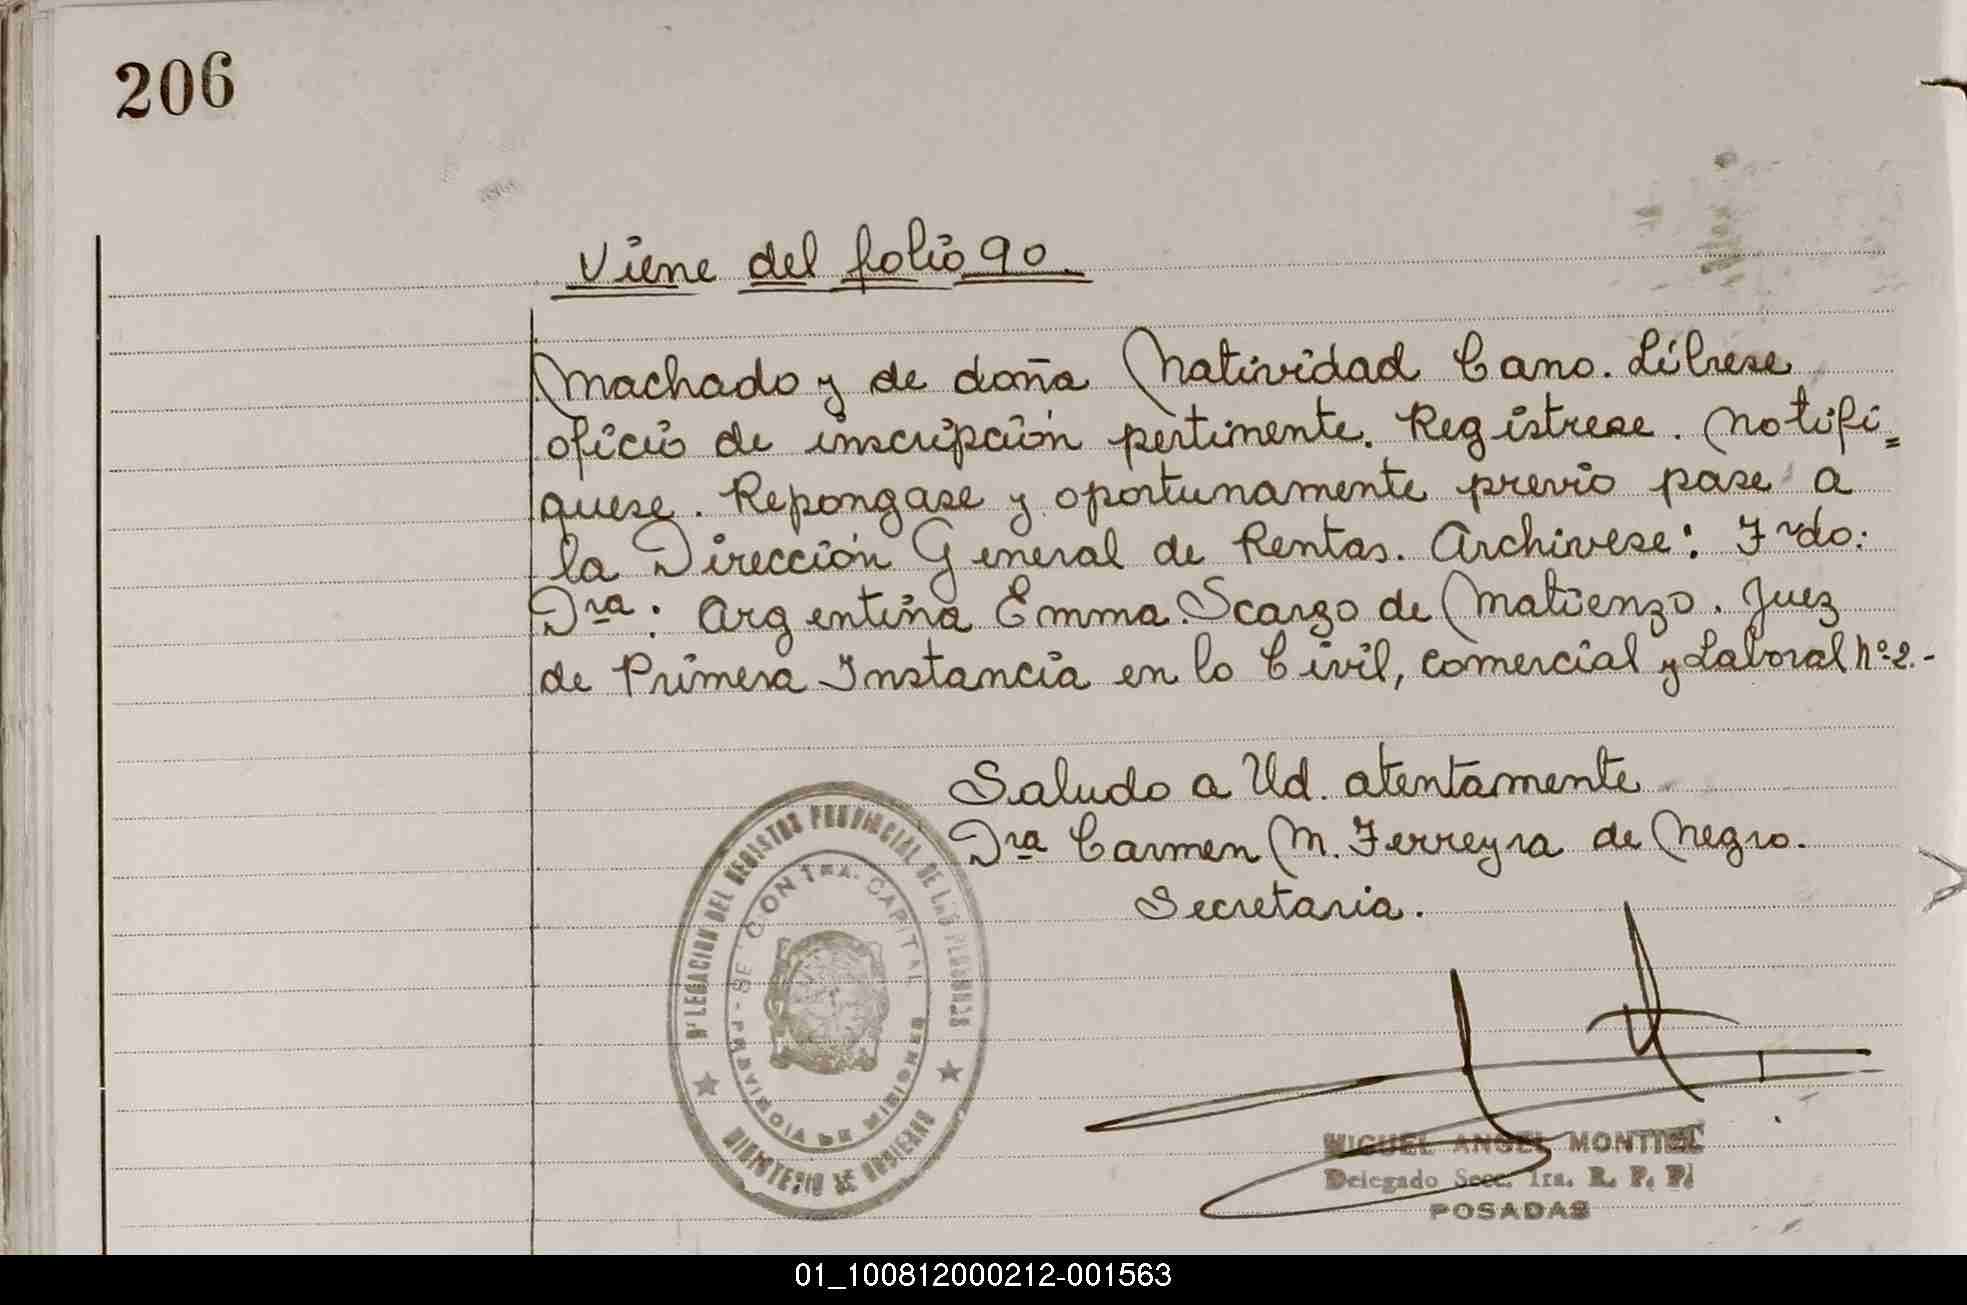 206
Viene del folio 90.
Machado y de doña Natividad Cano. Líbrese
oficio de inscripción pertinente. Registrese. Notifi=
quese. Repongase y oportunamente previo pase a
la Dirección General de Rentas. Archivese: Frdo:
Dra: Argentina Emma Scarzo de Matienzo. Juez
de Primera Instancia en lo Civil, Comercial y Laboral nº 2.-
Saludo a Ud. atentamente
Dra Carmen M. Ferreyra de Negro.
Secretaria.
DELEGACION DEL REGISTRO PROVINCIAL DE LAS PERSONAS
MINISTERIO DE GOBIERNO
CAPITAL
PROVINCIA DE MISIONES
MIGUEL ANGEL MONTIEL
Delegado Secc. 1ra. R. P. P.
POSADAS
01_100812000212-001563